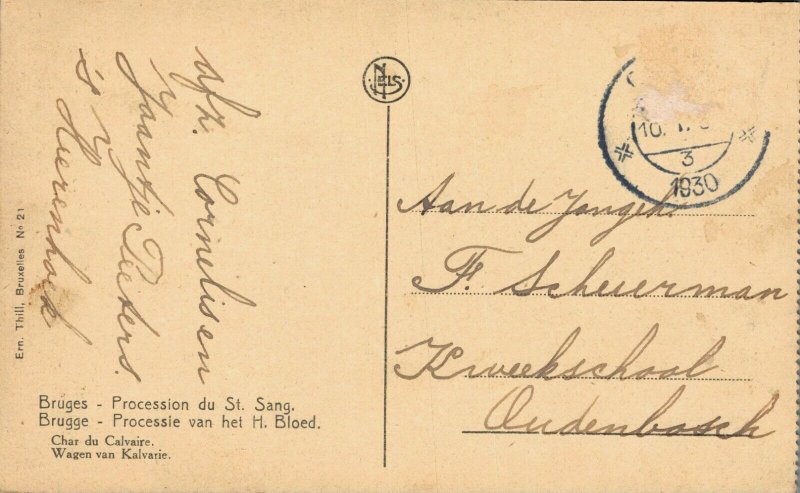 afz. Cornelis en
Jaantje Pieters.
's Heerenhoek
Ern. Thill, Bruxelles Nº 21
Bruges - Procession du St. Sang.
Brugge - Processie van het H. Bloed.
Char du Calvaire.
Wagen van Kalvarie.
NELS
10.
3
1930
Aan de Jongeh.
F. Scheuerman
Kweekschool
Oudenbosch